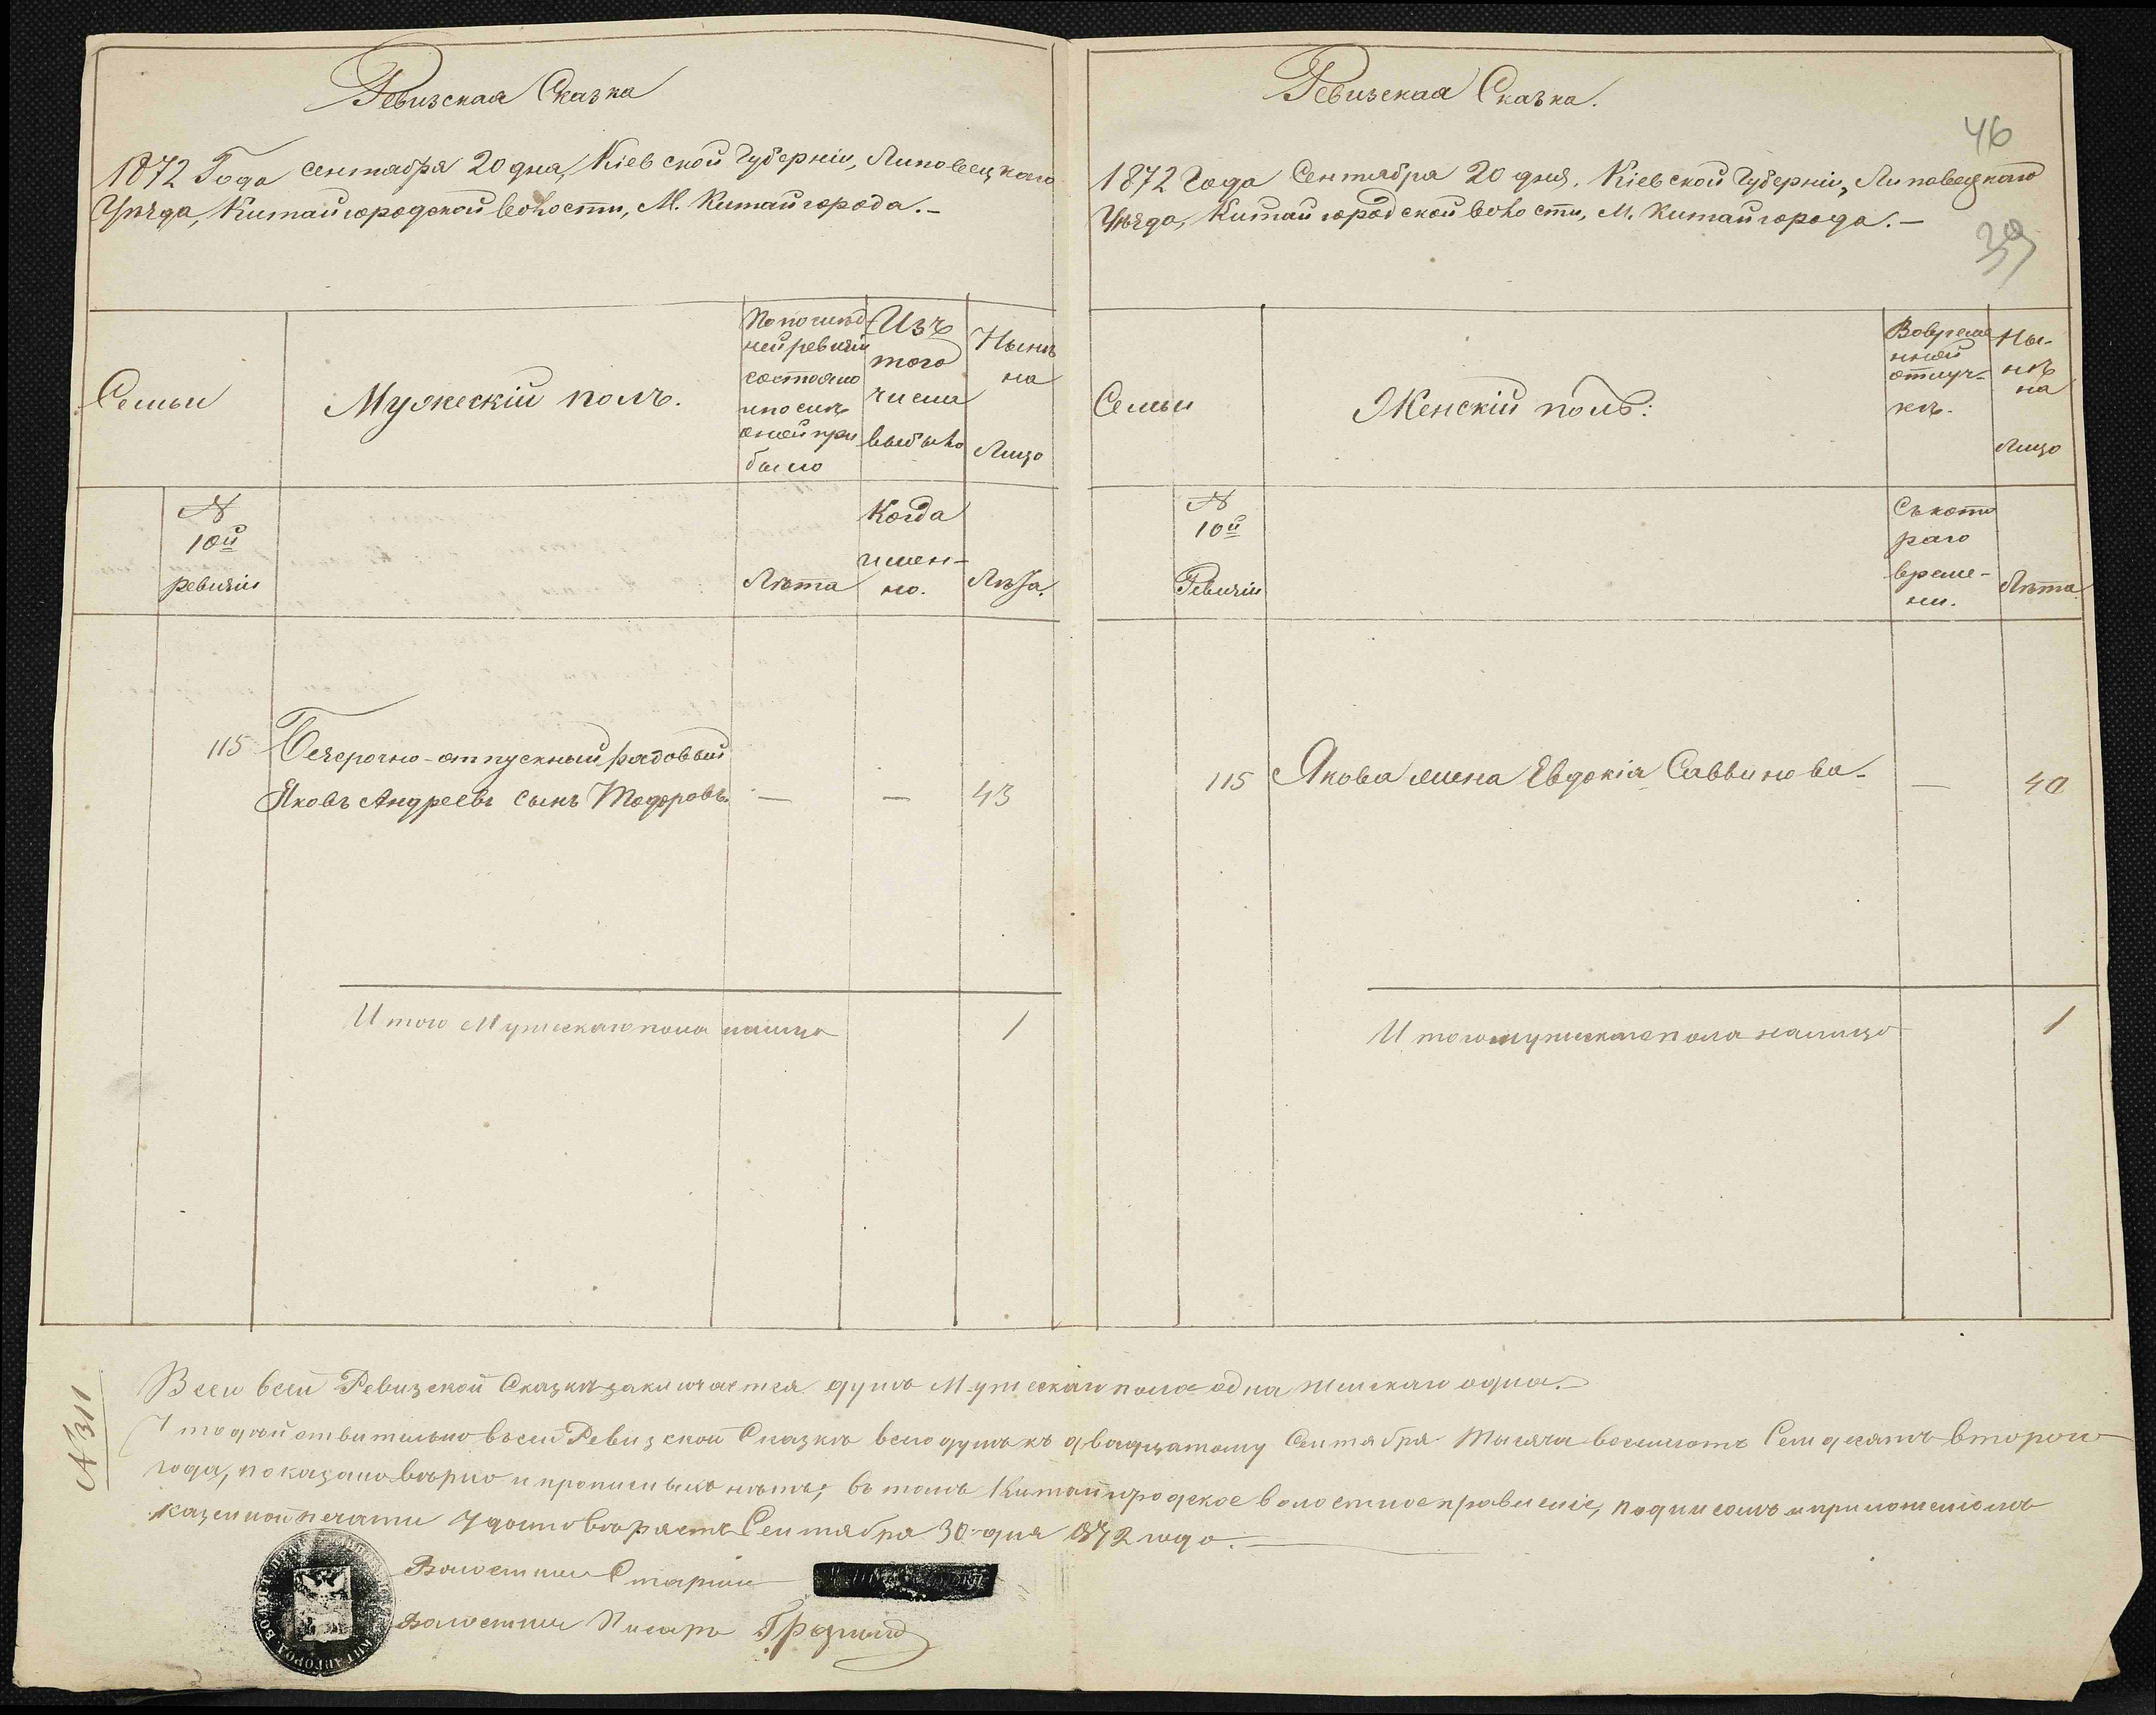 Ревизская Сказка
1872 Года сентября 20 дня, Кіевской Губерніи, Липовецкаго
Уѣзда, Китайгородской волости, М. Китайгорода.-
Семьи
Мужескій полъ.
По послѣд-
ней ревизіи
состояло
и послѣ
оной при
было
Изъ
того
числа
выбыло
Нынѣ
на
Лицо
№
10й
ревизіи
Лѣта
Когда
имен-
но.
Лѣта.
115
Безсрочно-отпускный рядовый
Яковъ Андреевъ сынъ Тодоровъ.
—
—
43
Итого Мужескаго пола налицо
1
Ревизская Сказка.
46
1872 Года Сентября 20 дня. Кіевской Губерніи, Липовецкаго
Уѣзда, Китайгородской волости, М. Китайгорода.-
39
Семьи
Женскій полъ:
Вовреме
нной
отлуч-
кѣ.
Ны-
нѣ
на
Лицо
№
10й
Ревизіи
Съ кото
раго
време-
ни.
Лѣта
115
Якова жена Евдокія Саввинова-
—
40
Итого мужескаго пола налицо
1
№ 311
Всего всей Ревизской Сказкѣ заключается душъ Мужескаго пола одна женскаго одна.-
Что дѣйствительно въ сей Ревизской Сказкѣ всего душъ къ двадцатому Сентября Тысяча восемьсотъ Семдесятъ второго
года, показано вѣрно и прописныхъ нѣтъ; въ томъ Китайгородское волостное правленіе, подписомъ и приложеніемъ
казенной печати удостовѣряетъ Сентября 30 дня 1872 года.
Волостный Старшина
Волостный Писарь
КИТАЙГОРОД ВОЛОСТ